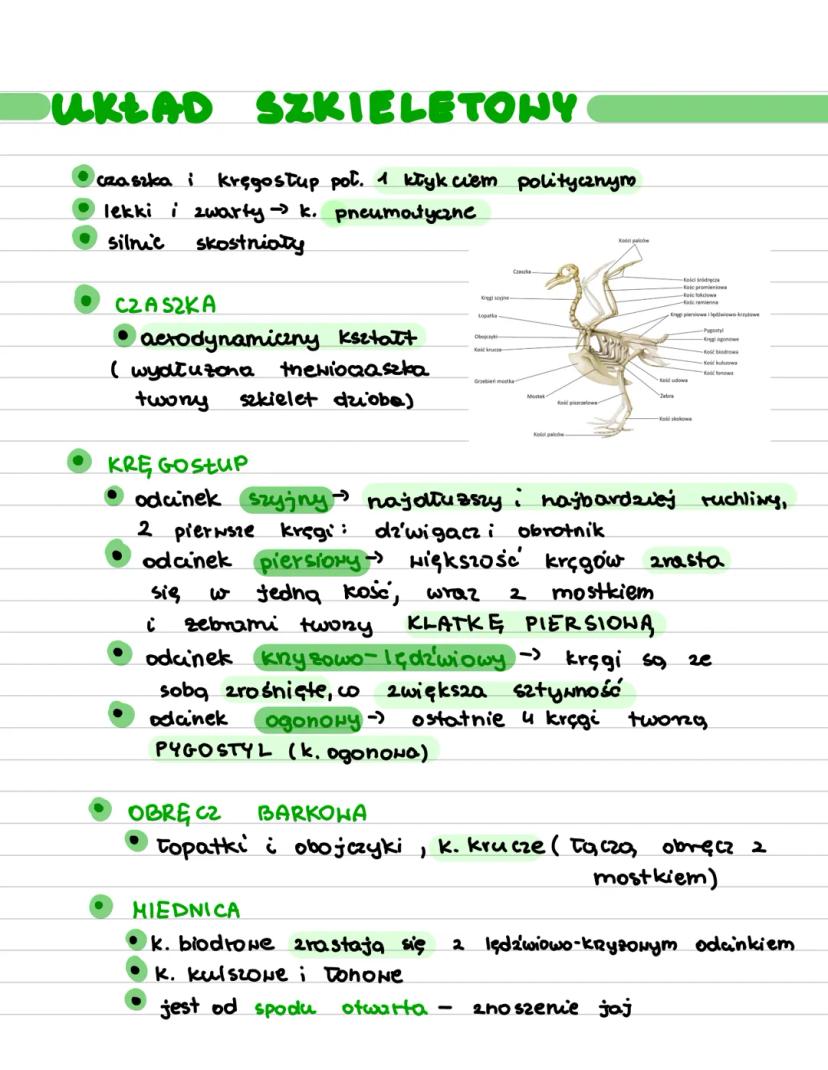 UKŁAD SZKIELETOWY
czaszka i kręgosłup poł. 1 kłykciem politycznym
lekki i zwarty → k. pneumatyczne
silnie skostniały
CZASZKA
aerodynamiczny kształt
( wydłużona trzewioczaszka
tworzy szkielet dzioba)
Kości palców
Czaszka
Kości śródręcza
Kość promieniowa
Kość łokciowa
Kość ramienna
Kręgi szyjne
Łopatka
Kręgi piersiowe i lędźwiowo-krzyżowe
Obojczyki
Pygostyl
Kręgi ogonowe
Kość krucza
Kość biodrowa
Kość kulszowa
Kość łonowa
Grzebień mostka
Kość udowa
Mostek
Żebra
Kość piszczelowa
Kość skokowa
Kości palców
KRĘGOSŁUP
odcinek szyjny → najdłuższy i najbardziej ruchliwy,
2 pierwsze kręgi: dźwigacz i obrotnik
odcinek piersiowy → większość kręgów zrasta
się w jedną kość, wraz z mostkiem
i żebrami tworzy KLATKĘ PIERSIOWĄ
odcinek krzyżowo-lędźwiowy → kręgi są ze
sobą zrośnięte, co zwiększa sztywność
odcinek ogonowy → ostatnie 4 kręgi tworzą
PYGOSTYL (k. ogonowa)
OBRĘCZ BARKOWA
łopatki i obojczyki, k. krucze ( łączą obręcz z
mostkiem)
MIEDNICA
k. biodrowe zrastają się z lędźwiowo-krzyżowym odcinkiem
k. kulszowe i łonowe
jest od spodu otwarta – znoszenie jaj